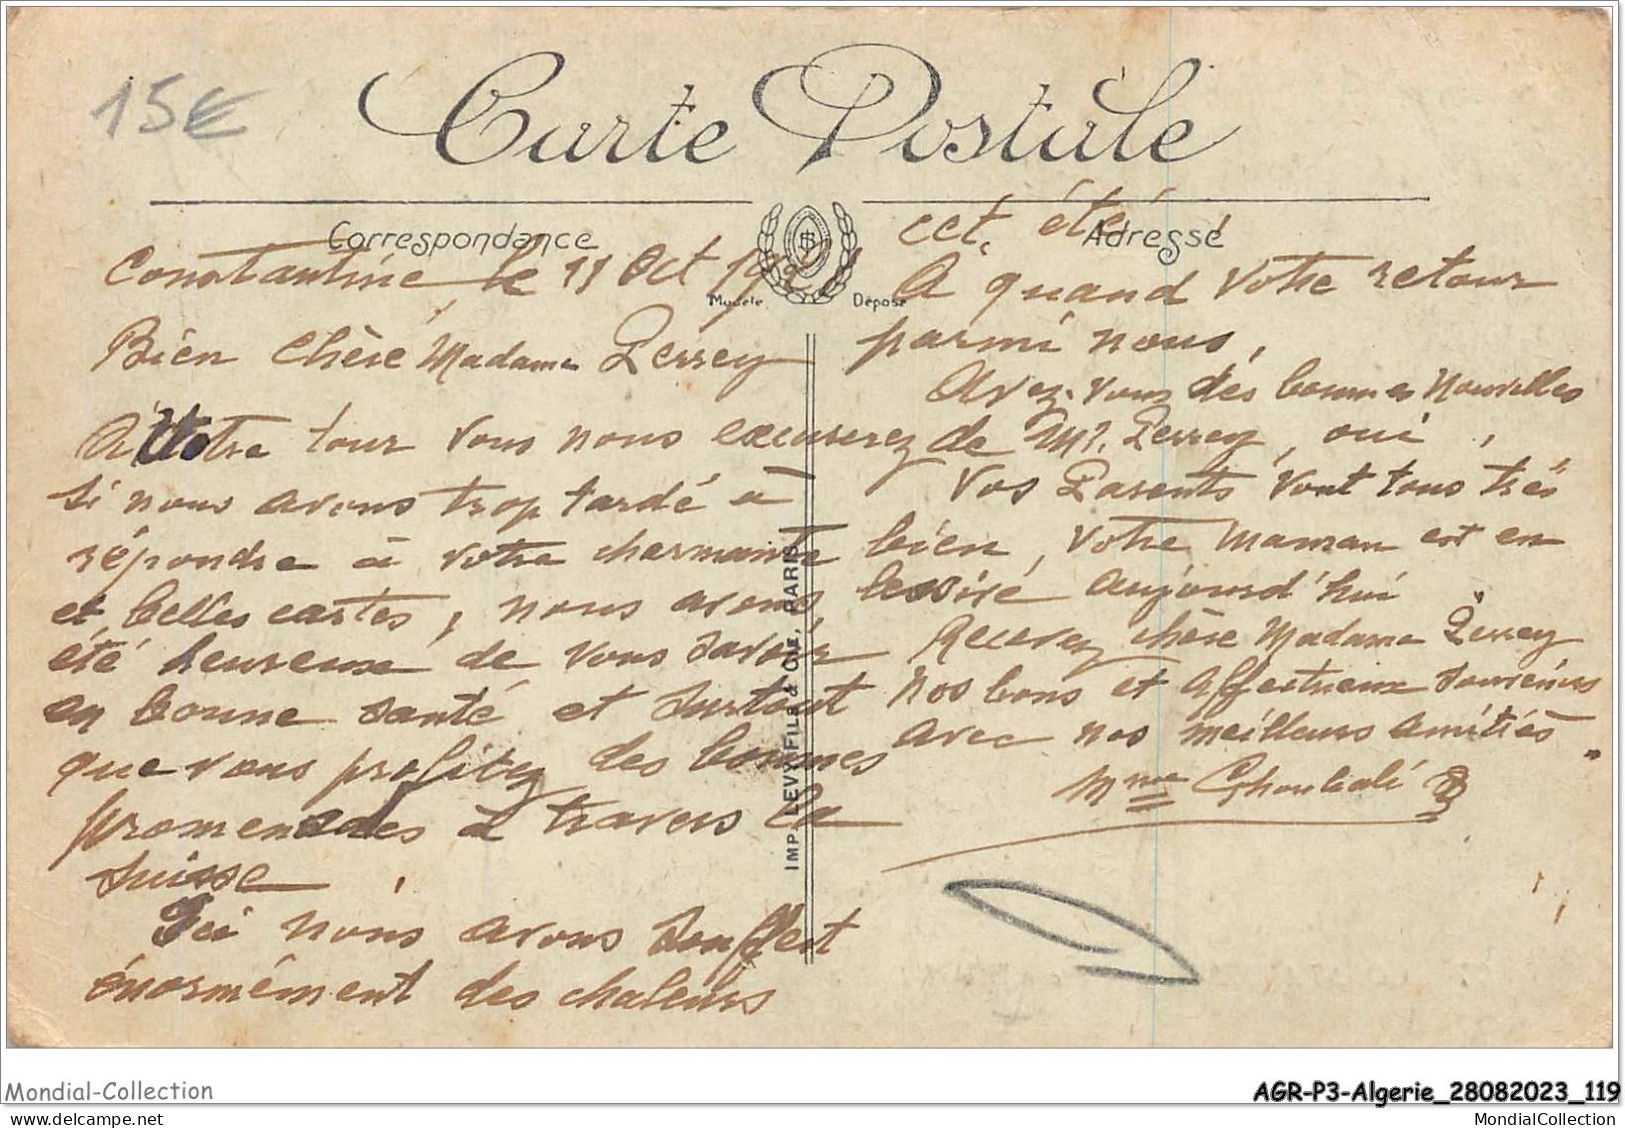 15€
Carte Postale
Correspondance
Adresse
Constantine le 11 Oct
Bien Chère Madame Perrey
A Votre tour vous nous excuserez
si nous avons trop tardé à
répondre à votre charmante
et belles cartes, nous avons
été heureuse de vous savoir
en bonne santé et surtout
que vous profitez des bonnes
promenades à travers la
Suisse
Ici nous avons souffert
énormément des chaleurs
Modèle Déposé
IMP. LEVY FILS & CIE. PARIS
cet été
A quand Votre retour
parmi nous,
Avez-vous des bonnes Nouvelles
de Mr. Perrey, oui,
Vos Parents vont tous très
bien, Votre Maman est en
lessive aujourd'hui
Recevez chère Madame Perrey
Nos bons et Affectueux Souvenirs
avec nos meilleurs amitiés
Mme
Mondial-Collection
AGR-P3-Algerie_28082023_119
MondialCollection